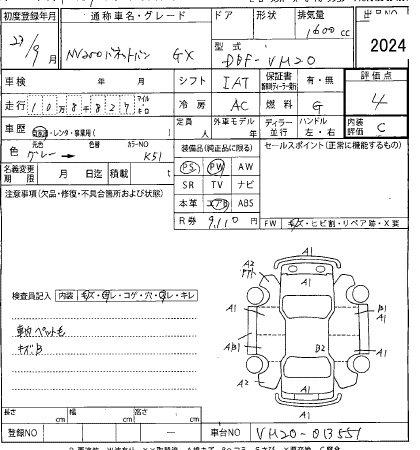 初度登録年月 通称車名・グレード ドア 形状 排気量
27/9月 NV200バネットバン GX 1600cc
型式 DBF-VM20 2024
車検 年 月 シフト IAT 保証書 有・無 評価点
走行 108487 マイル キロ 冷房 AC 燃料 G 4
車歴 自家用・レンタ・事業用( ) 定員 人 外車モデル 年 ディーラー 並行 ハンドル 左・右 内装評価 C
色 元色 グレー→ 色替 カラーNO K51 装備品(純正品に限る) セールスポイント(正常に機能するもの)
名義変更期限 月 日迄 積載 t PS PW AW
注意事項(欠品・修復・不具合箇所および状態) SR TV ナビ
本革 エアB ABS
R券 9,110円 FW キズ・ヒビ割・リペア跡・X要
A1
A2
A1
検査員記入 内装 キズ・汚レ・コゲ・穴・スレ・キレ
A1 B1
A1
車内ペット毛
AB1 A1
キズB
B2
A2 A2
A1
長さ cm 幅 cm 高さ cm
登録NO 車台NO VM20-013551